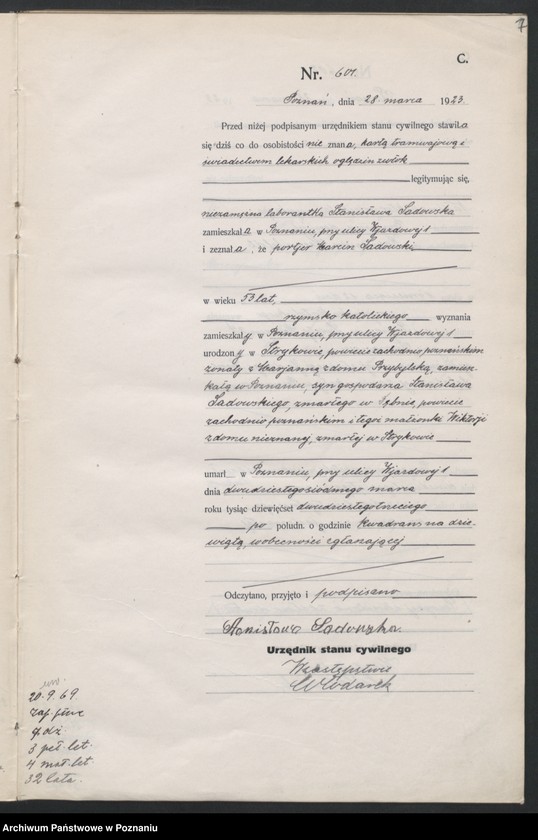 7
C.
Nr. 601.
Poznań, dnia 28. marca 1923.
Przed niżej podpisanym urzędnikiem stanu cywilnego stawiła
się dziś co do osobistości nie znana, kartą tramwajową i
świadectwem lekarskich oględzin zwłok
legitymując się,
niezamężna laborantka Stanisława Sadowska
zamieszkała w Poznaniu, przy ulicy Wjazdowej 1
i zeznała, że portjer Marcin Sadowski,
w wieku 53 lat,
rzymsko katolickiego wyznania
zamieszkały w Poznaniu, przy ulicy Wjazdowej 1
urodzony w Strykowie, powiecie zachodnio poznańskim
żonaty z Marjanną z domu Przybylską, zamiesz-
kałą w Poznaniu, syn gospodarza Stanisława
Sadowskiego, zmarłego w powiecie
zachodnio poznańskim i tegoż małżonki Wiktorji
z domu nieznanej, zmarłej w Strykowie
umarł w Poznaniu, przy ulicy Wjazdowej 1
dnia dwudziestego siódmego marca
roku tysiąc dziewięćset dwudziestego trzeciego
po połudn. o godzinie kwadrans na dzie-
wiątą, w obecności zgłaszającej
Odczytano, przyjęto i podpisano
Stanisława Sadowska.
Urzędnik stanu cywilnego
W zastępstwie
Włodarek
ur.
20. 9. 69.
4 dz.
3 peł. let.
4 mał. let.
32 lata.
Archiwum Państwowe w Poznaniu